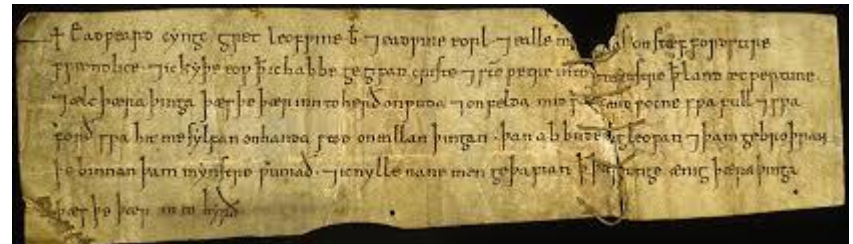 + Eadƿeard cyngc gret leofƿine ƀ ⁊ eadƿine eorl ⁊ ealle on stæffordscire
freondlice ⁊ ic kyþe eoƿ ꝥ ic habbe gegyfan criste ⁊ sc̄e petre into mynstre ꝥ land æt pertune.
⁊ ælc þæra þinga þæs þe þær inn to herð on ƿuda ⁊ on felda mid socne sƿa full ⁊ sƿa
forð sƿa hit me sylfan on handa stod on eallan þingan. þan abbude bigleofan ⁊ þam gebroþran
þe binnan þam mynstre ƿuniað. ⁊ ic nylle nane men geþafian ꝥ ænig þæra þinga
þæs þe þær in to hyrð